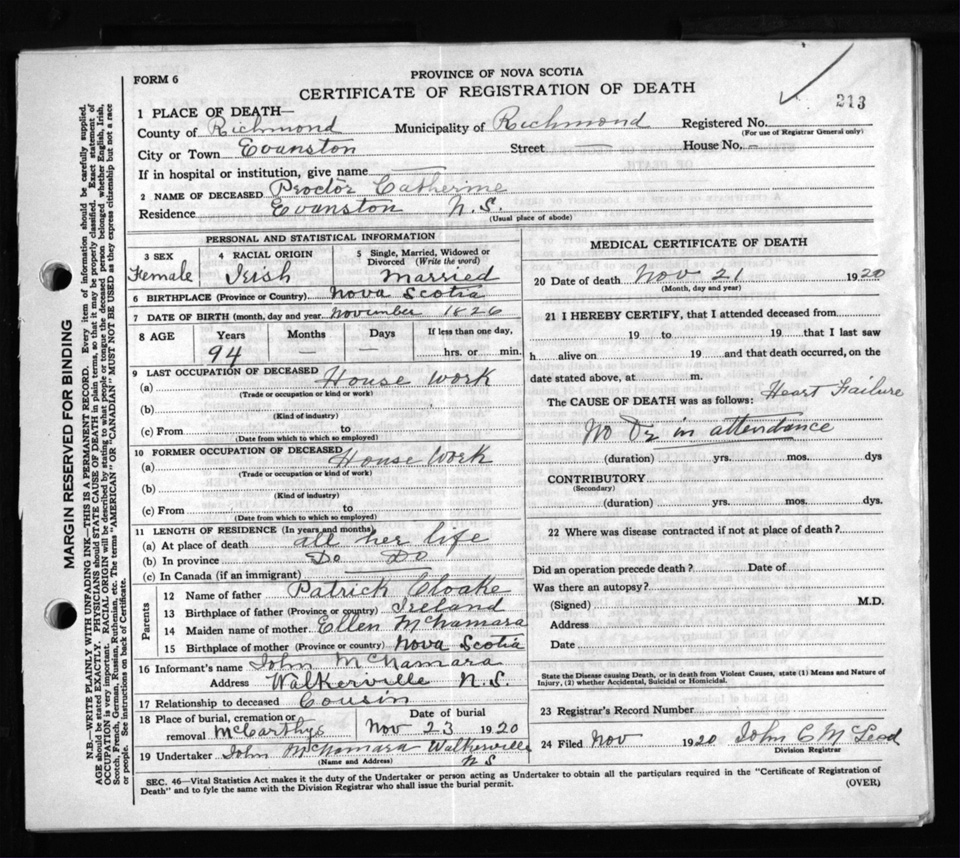 FORM 6
PROVINCE OF NOVA SCOTIA
CERTIFICATE OF REGISTRATION OF DEATH
213
1 PLACE OF DEATH—
County of Richmond Municipality of Richmond Registered No.
(For use of Registrar General only)
City or Town Evanston Street — House No. —
If in hospital or institution, give name
2 NAME OF DECEASED Proctor Catherine
Residence Evanston N.S.
(Usual place of abode)
PERSONAL AND STATISTICAL INFORMATION
3 SEX Female
4 RACIAL ORIGIN Irish
5 Single, Married, Widowed or Divorced (Write the word) Married
6 BIRTHPLACE (Province or Country) Nova Scotia
7 DATE OF BIRTH (month, day and year) November 1826
8 AGE Years Months Days If less than one day,
94 — — hrs. or min.
9 LAST OCCUPATION OF DECEASED
(a) House work
(Trade or occupation or kind of work)
(b)
(Kind of industry)
(c) From to
(Date from which to which so employed)
10 FORMER OCCUPATION OF DECEASED
(a) House Work
(Trade or occupation or kind of work)
(b)
(Kind of industry)
(c) From to
(Date from which to which so employed)
11 LENGTH OF RESIDENCE (In years and months)
(a) At place of death all her life
(b) In province Do Do
(c) In Canada (if an immigrant)
Parents
12 Name of father Patrick Cloake
13 Birthplace of father (Province or country) Ireland
14 Maiden name of mother Ellen McNamara
15 Birthplace of mother (Province or country) Nova Scotia
16 Informant's name John McNamara
Address Walkerville N.S.
17 Relationship to deceased Cousin
18 Place of burial, cremation or removal McCarthys
Date of burial Nov 23 1920
19 Undertaker John McNamara Walkerville
(Name and Address) NS
MEDICAL CERTIFICATE OF DEATH
20 Date of death Nov 21 1920
(Month, day and year)
21 I HEREBY CERTIFY, that I attended deceased from
19 to 19 that I last saw
h alive on 19 and that death occurred, on the
date stated above, at m.
The CAUSE OF DEATH was as follows: Heart Failure
No Dr in attendance
(duration) yrs. mos. dys
CONTRIBUTORY
(Secondary)
(duration) yrs. mos. dys.
22 Where was disease contracted if not at place of death?
Did an operation precede death? Date of
Was there an autopsy?
(Signed) M.D.
Address
Date
State the Disease causing Death, or in death from Violent Causes, state (1) Means and Nature of
Injury, (2) whether Accidental, Suicidal or Homicidal.
23 Registrar's Record Number
24 Filed Nov 1920 John C McLeod
Division Registrar
SEC. 46—Vital Statistics Act makes it the duty of the Undertaker or person acting as Undertaker to obtain all the particulars required in the "Certificate of Registration of
Death" and to fyle the same with the Division Registrar who shall issue the burial permit. (OVER)
MARGIN RESERVED FOR BINDING
N.B.—WRITE PLAINLY WITH UNFADING INK—THIS IS A PERMANENT RECORD. Every item of information should be carefully supplied.
AGE should be stated EXACTLY. PHYSICIANS should STATE CAUSE OF DEATH in plain terms, so that it may be properly classified. Exact statement of
OCCUPATION is very important. RACIAL ORIGIN will be described by stating to what people or tongue the deceased person belonged whether English, Irish,
Scotch, French, German, Russian, Ruthenian, etc. The terms "AMERICAN" OR "CANADIAN" MUST NOT BE USED as they express citizenship but not a race
or people. See instructions on back of Certificate.